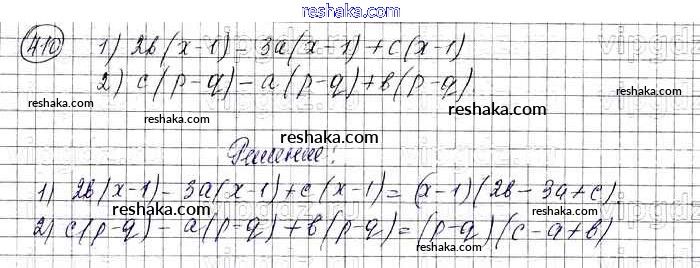 410 1) 2b(x-1) - 3a(x-1) + c(x-1)
2) c(p-q) - a(p-q) + b(p-q).
Решение:
1) 2b(x-1) - 3a(x-1) + c(x-1) = (x-1)(2b - 3a + c).
2) c(p-q) - a(p-q) + b(p-q) = (p-q)(c-a+b)
reshaka.com
reshaka.com
reshaka.com
reshaka.com
reshaka.com
reshaka.com
reshaka.com
reshaka.com
reshaka.com